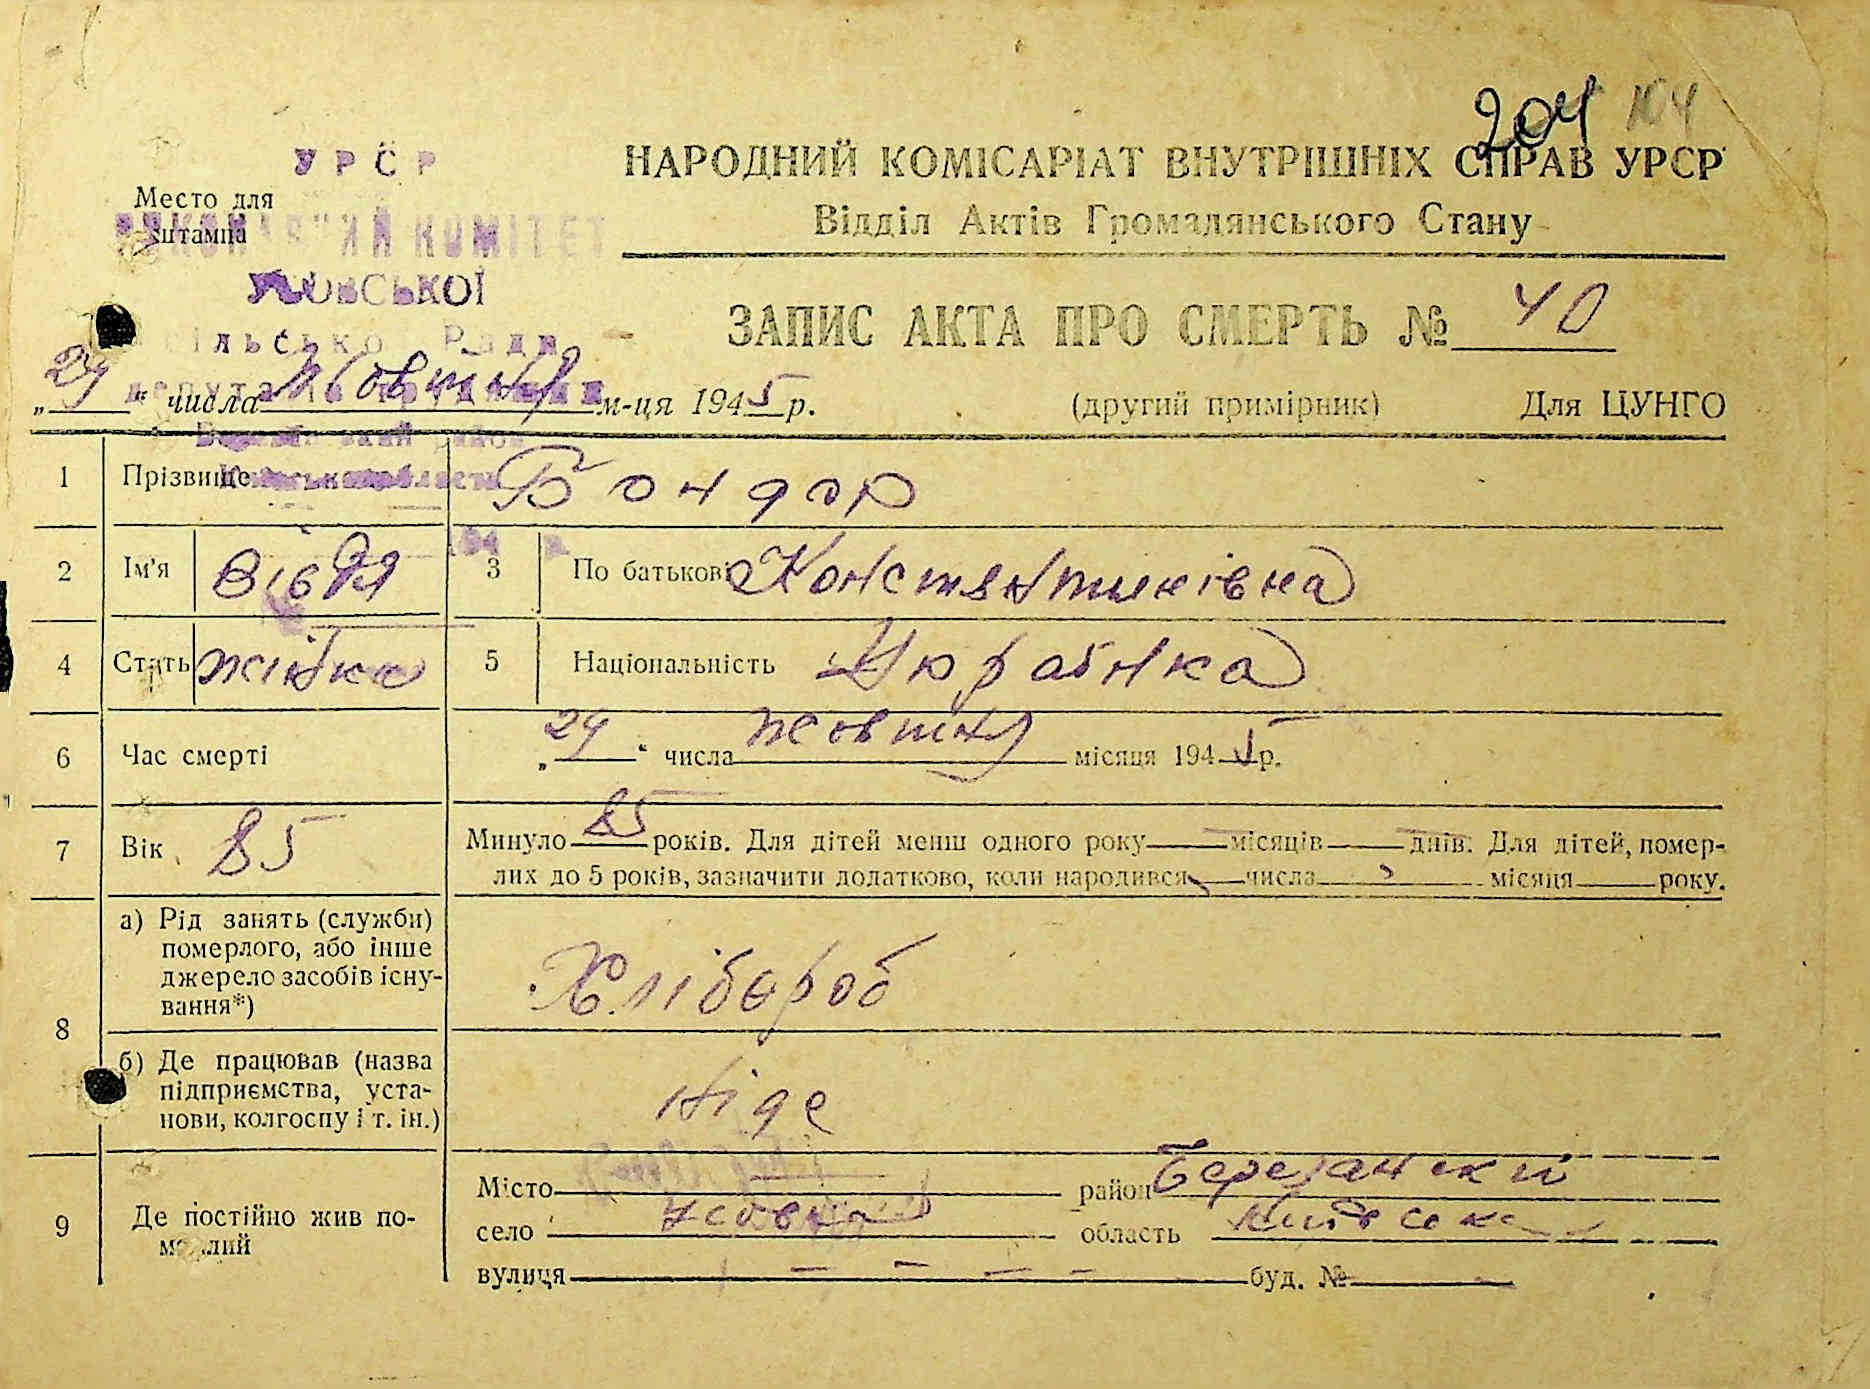 204 104
УРСР
НАРОДНИЙ КОМІСАРІАТ ВНУТРІШНІХ СПРАВ УРСР
Место для
штампа
Відділ Актів Громадянського Стану
КОМІТЕТ
УСОВСЬКОЇ
ЗАПИС АКТА ПРО СМЕРТЬ № 40
сільсько Ради
„29“ числа жовтня м-ця 1945 р. (другий примірник) Для ЦУНГО
1 Прізвище Бондар
2 Ім'я Вівдя 3 По батькові Константинівна
4 Стать жінка 5 Національність Українка
6 Час смерті „29“ числа жовтня місяця 1945 р.
7 Вік 85 Минуло 85 років. Для дітей менш одного року — місяців — днів. Для дітей, помер-
лих до 5 років, зазначити додатково, коли народився — числа — місяця — року.
8 а) Рід занять (служби)
померлого, або інше
джерело засобів існу-
вання*)
Хлібороб
б) Де працював (назва
підприємства, уста-
нови, колгоспу і т. ін.)
Ніде
9 Де постійно жив по-
мерлий
Місто — район Березанский
село Усовка область Київска
вулиця — — — — буд. № —